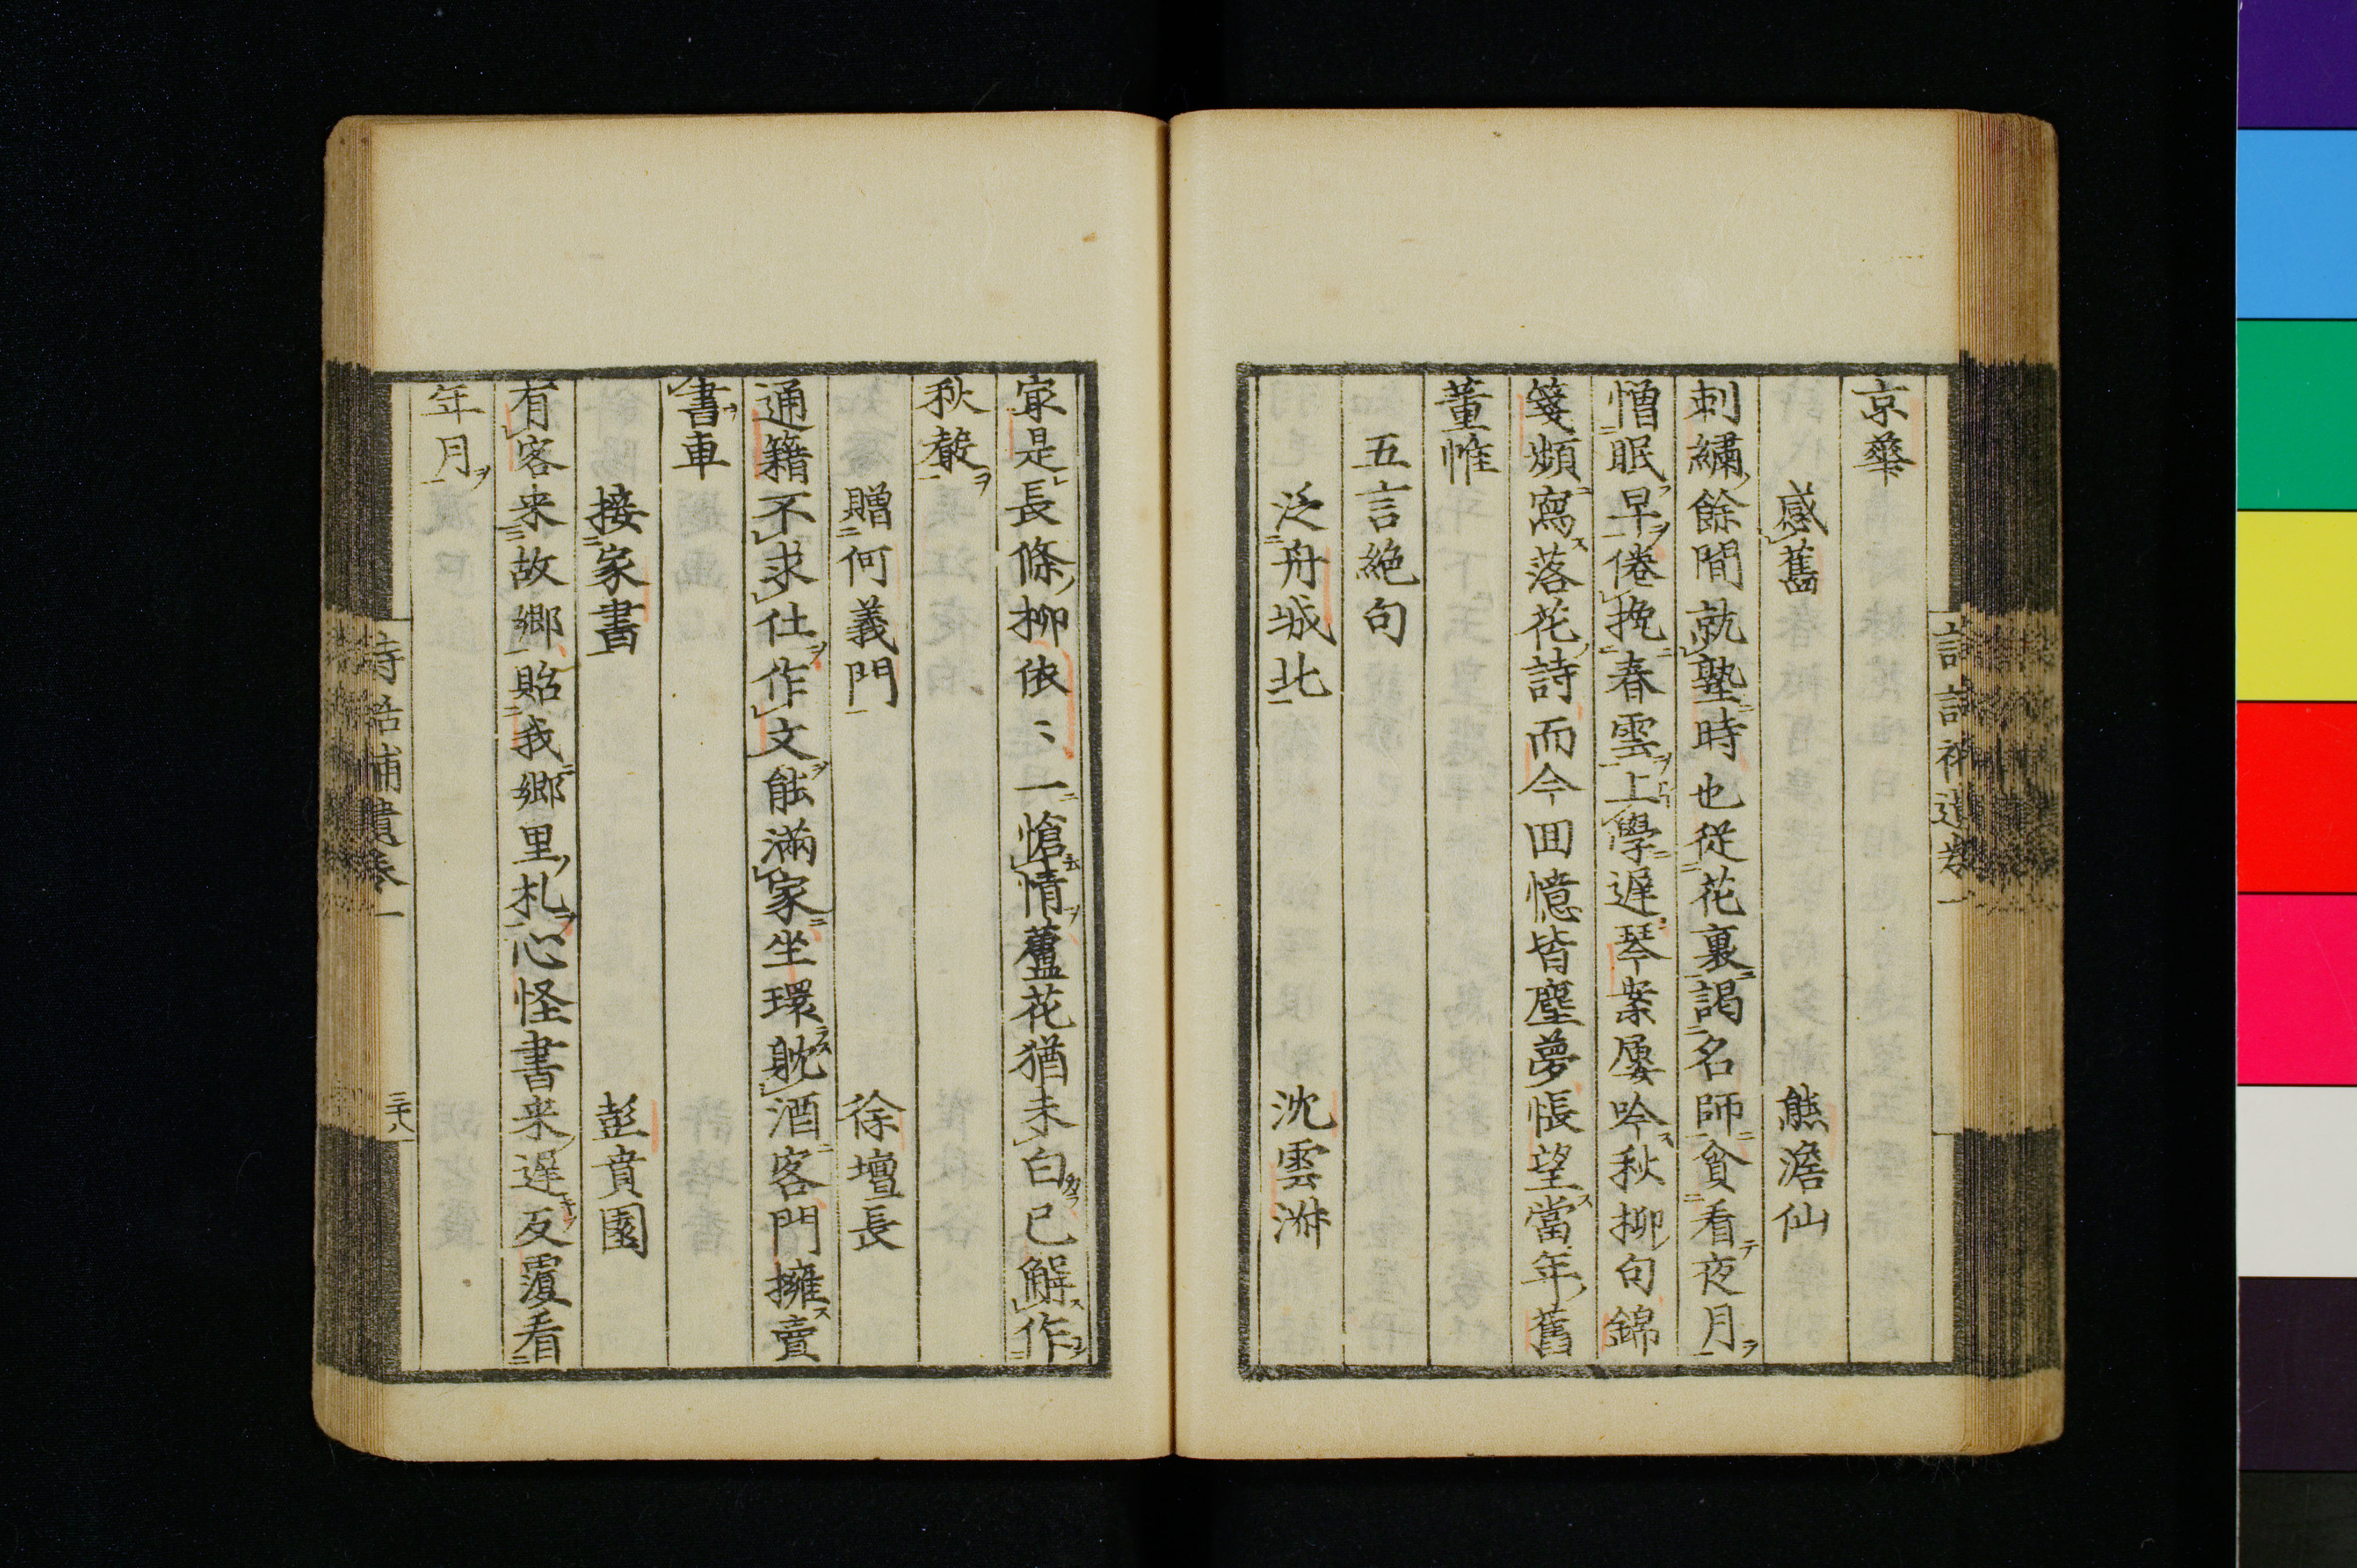 京華
感舊 熊澹仙
刺繡餘閒就塾時也從花裏謁名師貧看夜月
憎眠早倦挽春雲上學遲琴案屢吟秋柳句錦
箋頻寫落花詩而今回憶皆塵夢悵望當年舊
董帷
五言絶句
泛舟城北 沈雲湵
冣是長條柳依〻一愴情蘆花猶未白已解作
秋聲
贈何義門 徐壇長
通籍不求仕作文能滿家坐環躭酒客門擁賣
書車
接家書 彭賁園
有客来故郷貽我郷里札心怪書来遲反覆看
年月
詩話補遺卷一 三十八